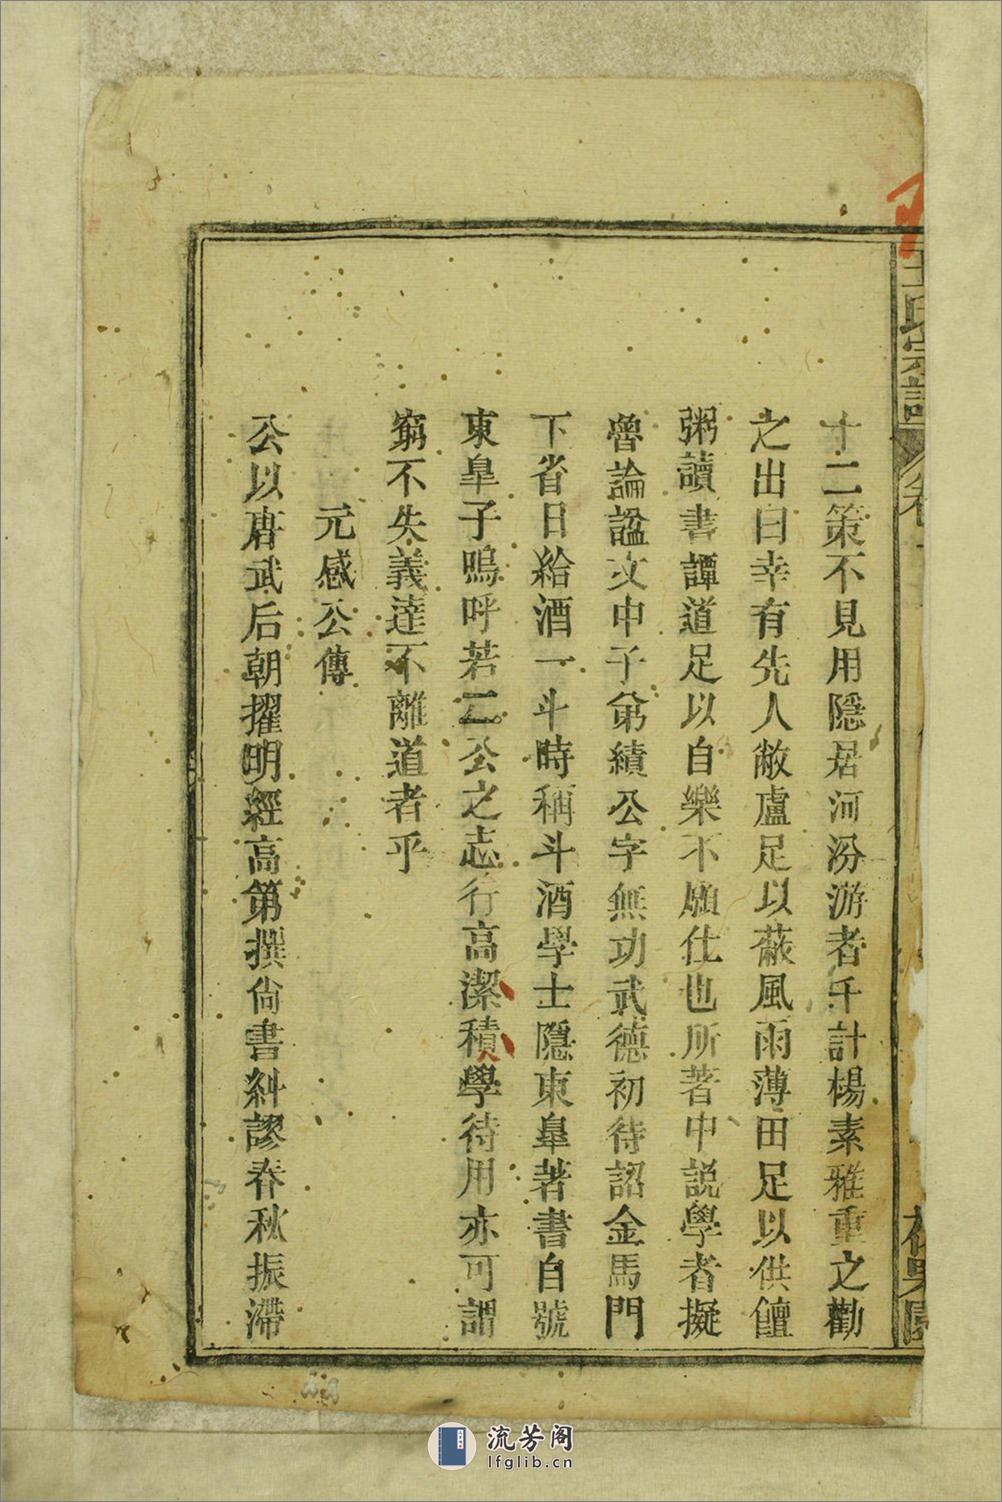 王氏宗譜 卷
十二策不見用隱居河汾游者千計楊素雅重之勸
之出曰幸有先人敝廬足以蔽風雨薄田足以供饘
粥讀書譚道足以自樂不願仕也所著中説學者擬
魯論諡文中子弟績公字無功武德初待詔金馬門
下省日給酒一斗時稱斗酒學士隱東臯著書自號
東臯子嗚呼若二公之志行高潔積學待用亦可謂
窮不失義達不離道者乎
元感公傳
公以唐武后朝擢明經高第撰尙書糾謬春秋振滯
流芳阁
lfglib.cn